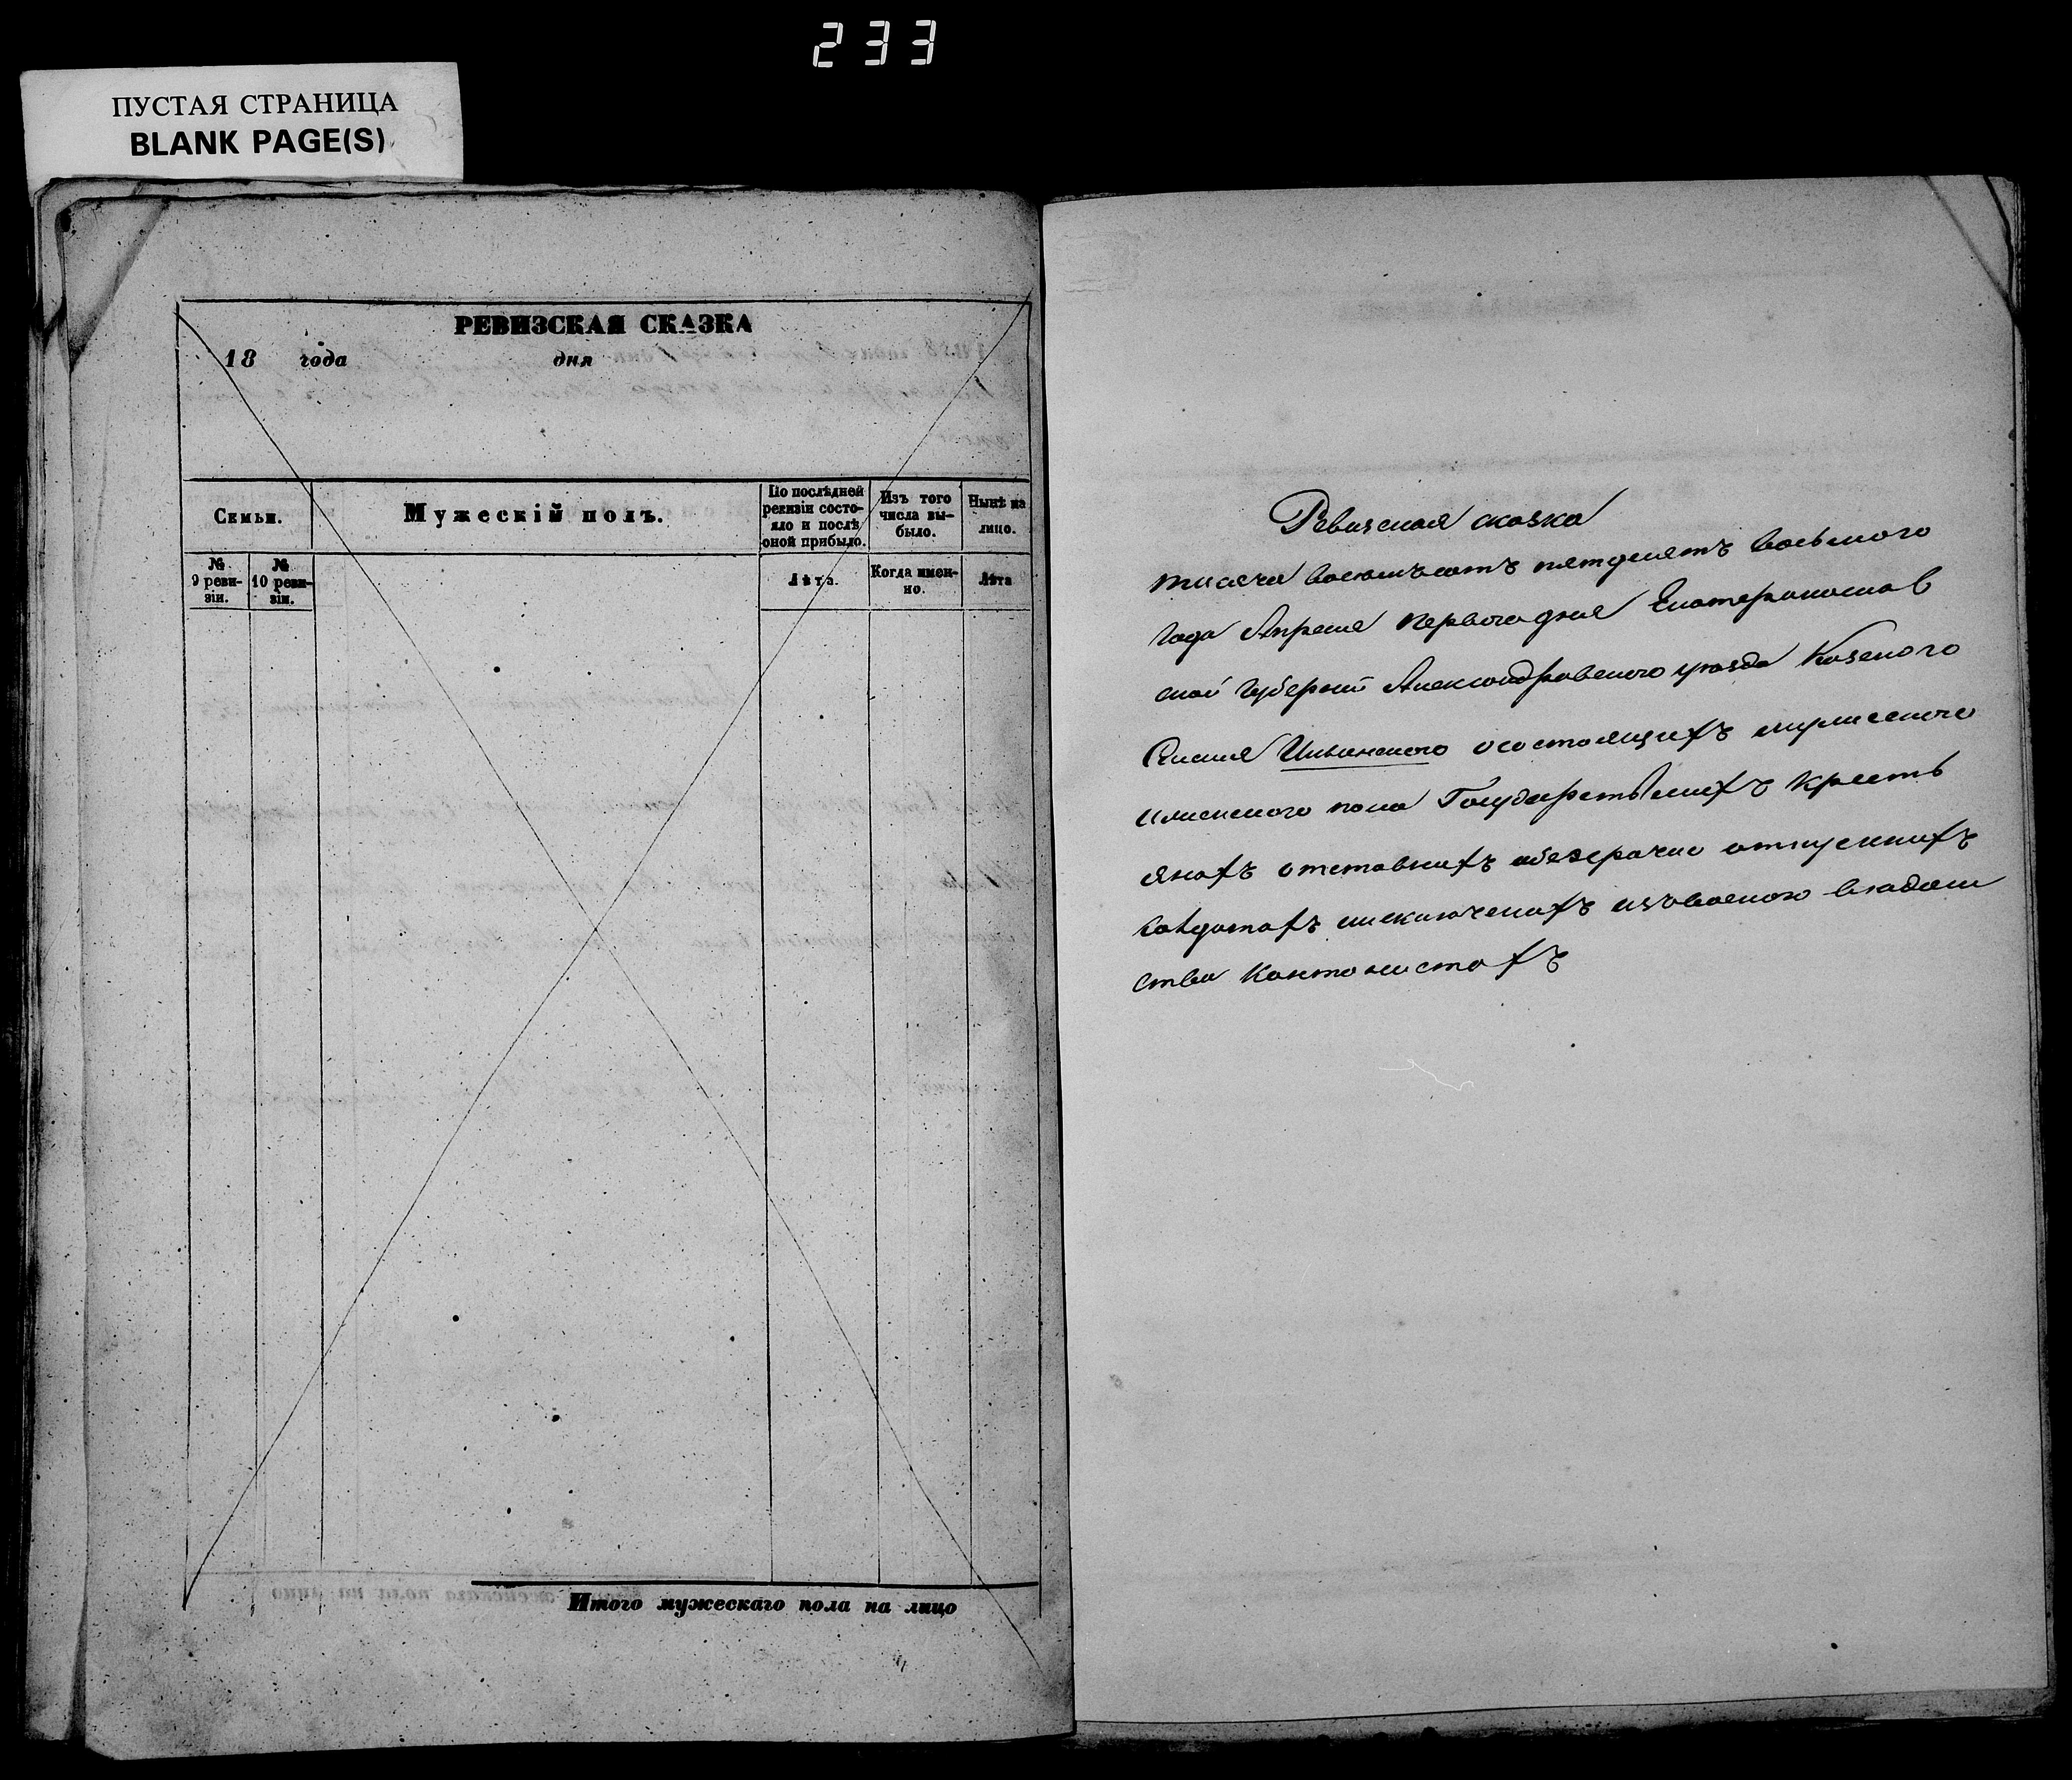 233
ПУСТАЯ СТРАНИЦА
BLANK PAGE(S)
РЕВИЗСКАЯ СКАЗКА
18 года дня
Семьи.
Мужескій полъ.
По послѣдней ревизіи состо-яло и послѣ оной прибыло.
Изъ того числа вы-было.
Нынѣ на лицо.
№ 9 реви-зіи.
№ 10 реви-зіи.
Лѣта.
Когда имен-но.
Лѣта
Итого мужескаго пола на лицо
Ревизская сказка
тисяча восемъсотъ пятдесятъ восьмого
года Апреля первого дня Екатеринослав
ской губернии Александровского уезда Казеного
Селия Ильинского осостоящихъ мужеского
иженского пола Государственихъ кресть
янахъ отставнихъ ибезсрочно отпускнихъ
солдатахъ иисключенихъ изъвоеного владом
ства Кантонистахъ